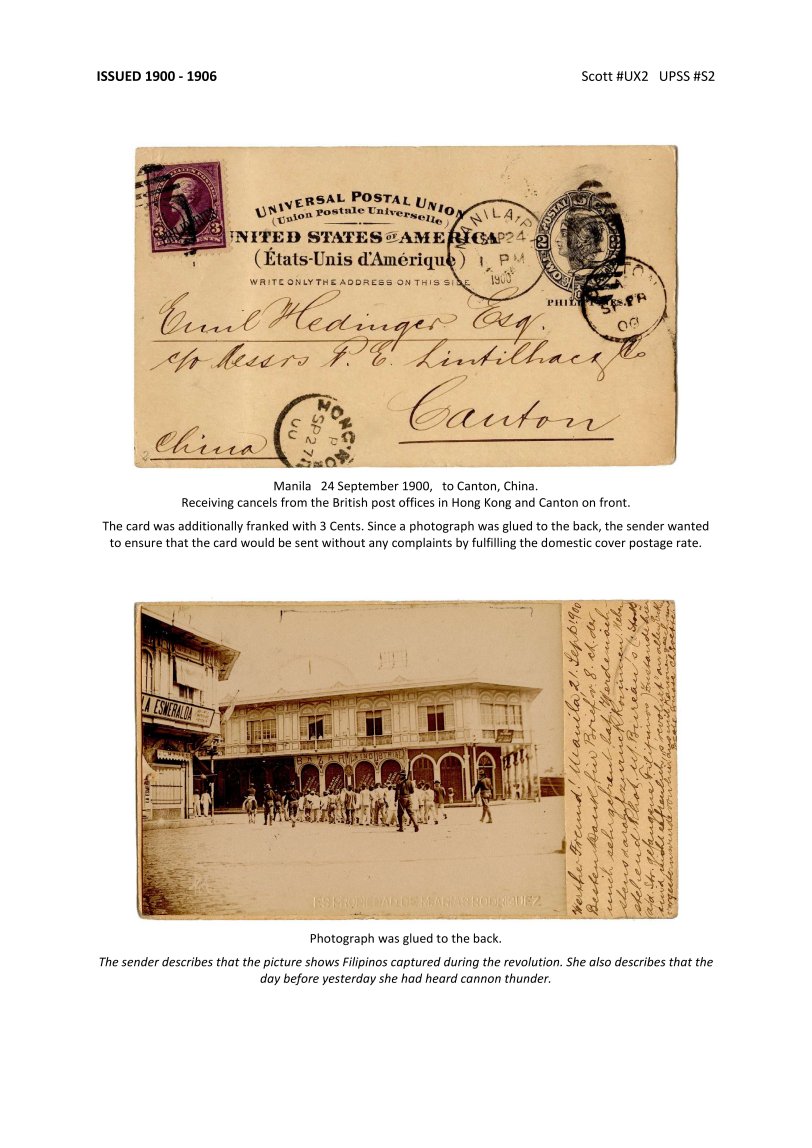 ISSUED 1900 - 1906
Scott #UX2 UPSS #S2
3
PHILIPPINES
3
CENTS
UNIVERSAL POSTAL UNION
(Union Postale Universelle)
UNITED STATES OF AMERICA
(États-Unis d'Amérique)
WRITE ONLY THE ADDRESS ON THIS SIDE
MANILA, P.
SEP 24
1 PM
1900
POSTAL
2
2
TWO
PHILIPPINES.
00
Emil Hedinger Esq.
c/o Messrs P. E. Lintilhac & Co
Canton
China
HONG KO
P
SP 27
00
Manila 24 September 1900, to Canton, China.
Receiving cancels from the British post offices in Hong Kong and Canton on front.
The card was additionally franked with 3 Cents. Since a photograph was glued to the back, the sender wanted
to ensure that the card would be sent without any complaints by fulfilling the domestic cover postage rate.
LA ESMERALDA
ES PROPIEDAD DE M. ARIAS RODRIGUEZ
Werther Freund! Manila 2. Sept. 1900
Besten Dank für Brief v. 8. ct. der
mich sehr gefreut hat.
Photograph was glued to the back.
The sender describes that the picture shows Filipinos captured during the revolution. She also describes that the
day before yesterday she had heard cannon thunder.